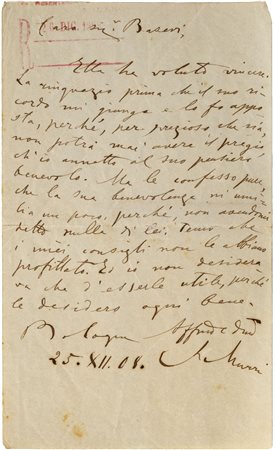 DIC. 190
Cara Sig.ª Basevi,
Ella ha voluto vincere.
La ringrazio prima che il suo ri
cordo mi giunga e lo fo appo
sta, perché, per prezioso che sia,
non potrà mai avere il pregio
ch'io annetto al suo pensiero
benevolo. Ma le confesso pure
che la sua benevolenza mi umi
lia un poco, perché, non avendomi
detto nulla di lei, temo che
i miei consigli non le abbiano
profittato. Ed io non desidera
va che d'esserle utile, perché
le desidero ogni bene.
Bologna
25. XII. 08. Murri